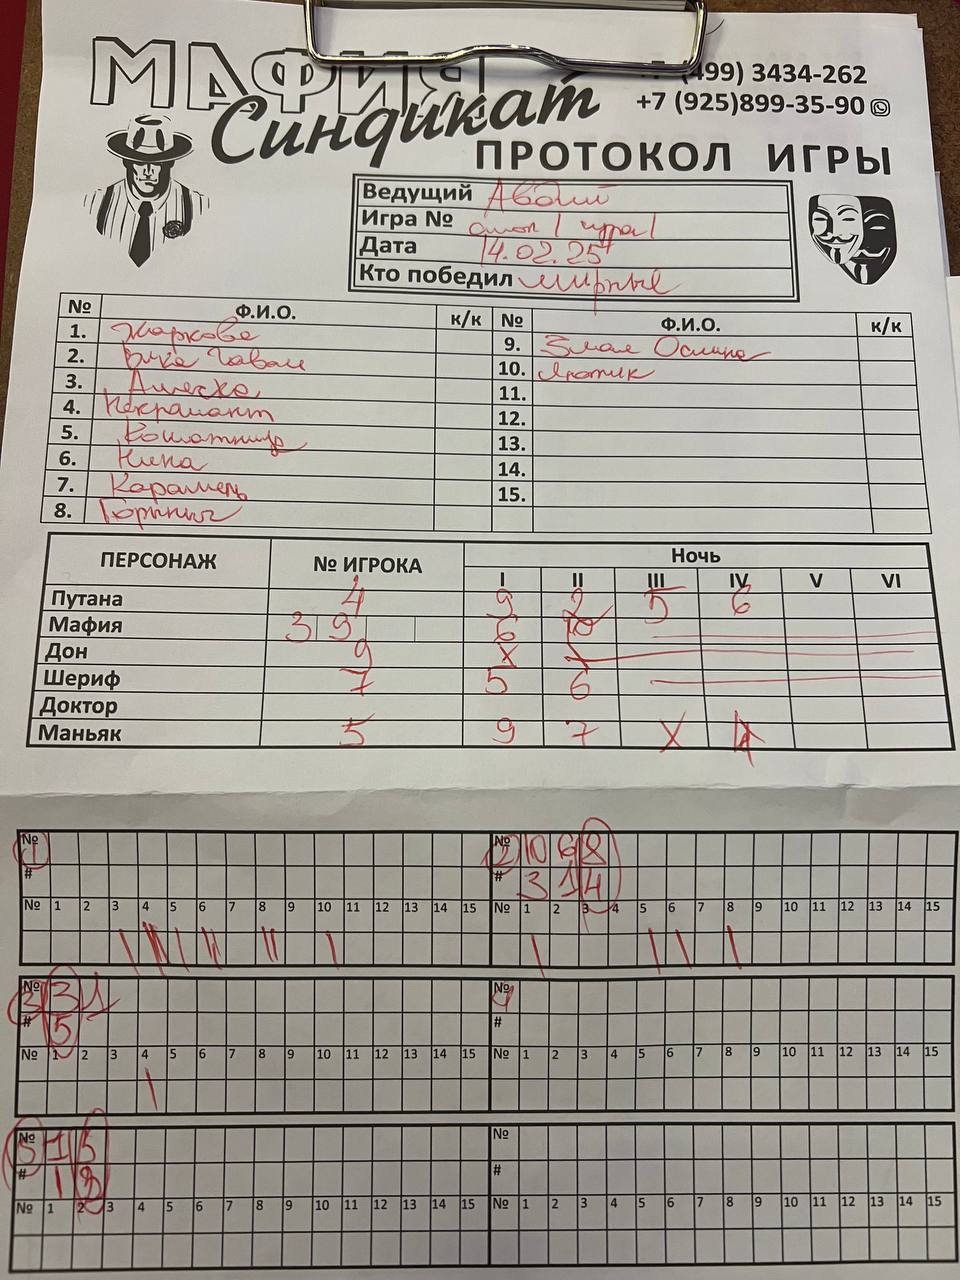 МАФИЯ
Синдикат
(499) 3434-262
+7 (925)899-35-90
ПРОТОКОЛ ИГРЫ
Ведущий
Игра № 1 игра 1
Дата 14.02.25
Кто победил мирные
№ Ф.И.О. к/к № Ф.И.О. к/к
1. Жаркова 9. Злая
2. Вика 10.
3. 11.
4. Некромант 12.
5. 13.
6. Ника 14.
7. Карамель 15.
8. Горыныч
ПЕРСОНАЖ № ИГРОКА Ночь
I II III IV V VI
Путана 4 9 2 5 6
Мафия 3 9 6 10
Дон 9 X
Шериф 7 5 6
Доктор
Маньяк 5 9 7 X
№ 1 № 2 10 6 8
# # 3 1 4
№ 1 2 3 4 5 6 7 8 9 10 11 12 13 14 15 № 1 2 3 4 5 6 7 8 9 10 11 12 13 14 15
№ 3 3 1 № 4
# 5 #
№ 1 2 3 4 5 6 7 8 9 10 11 12 13 14 15 № 1 2 3 4 5 6 7 8 9 10 11 12 13 14 15
№ 5 1 5 №
# 1 #
№ 1 2 3 4 5 6 7 8 9 10 11 12 13 14 15 № 1 2 3 4 5 6 7 8 9 10 11 12 13 14 15